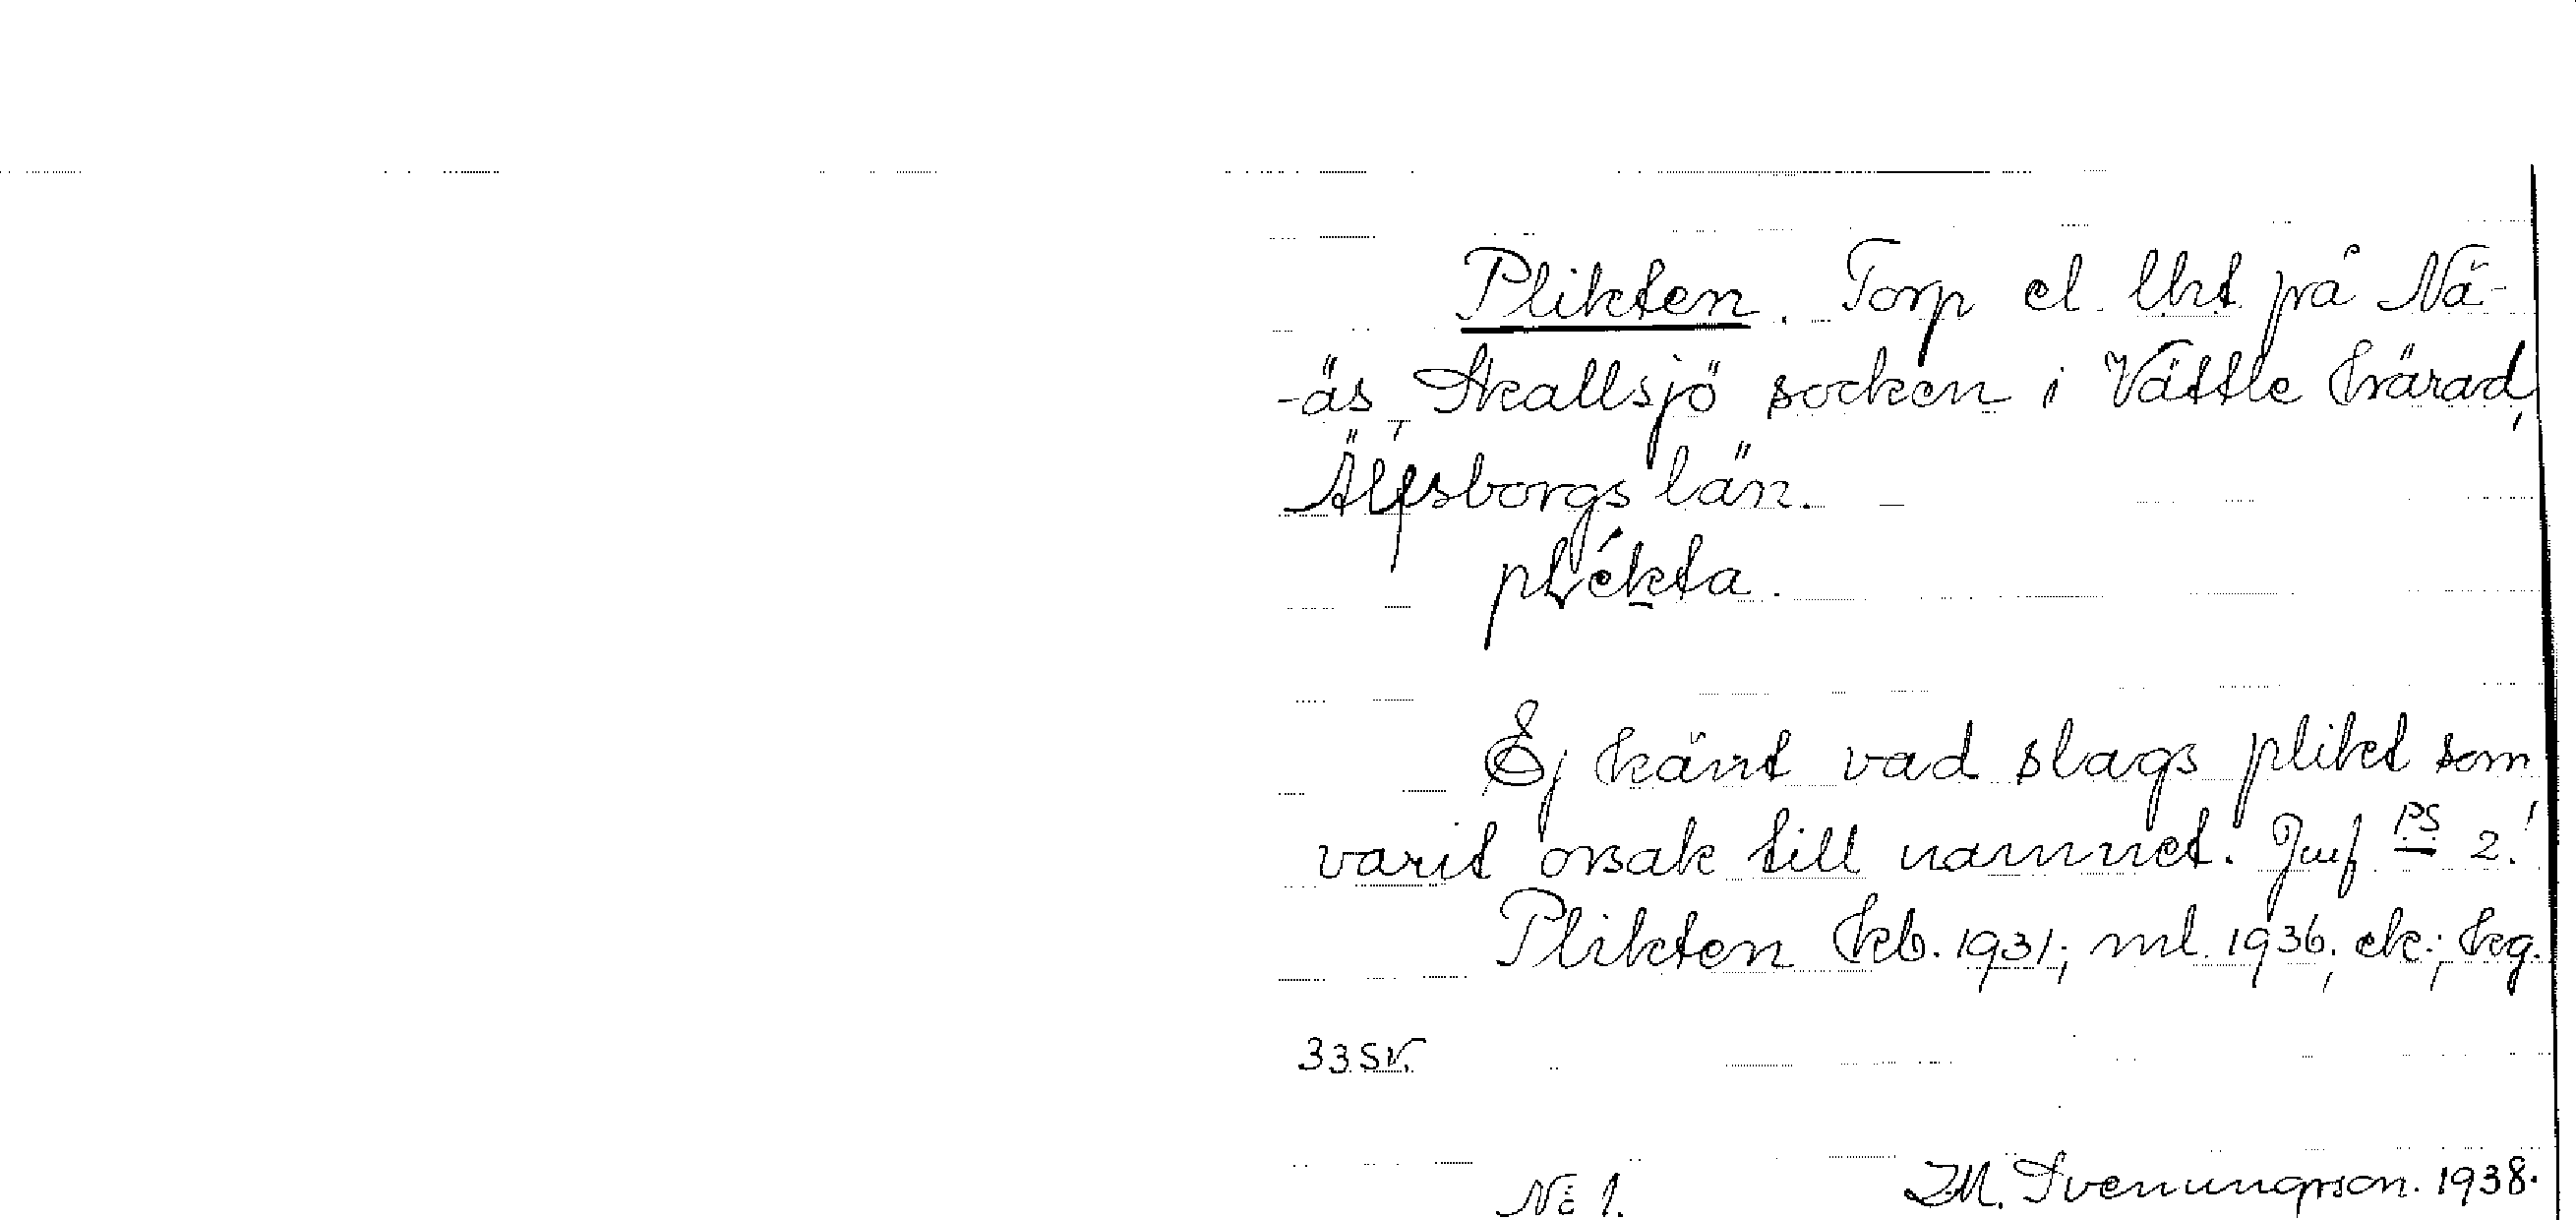 Plikten. Torp el. lht på Nä-
-äs, Skallsjö socken i Vättle härad,
Älfsborgs län.
plékta.
Ej känt vad slags plikt som
varit orsak till namnet. Jmf PS 2!
Plikten kb. 1931; ml. 1936; ek.; kg.
33 SV.
No 1. I.M. Svenungsson. 1938.